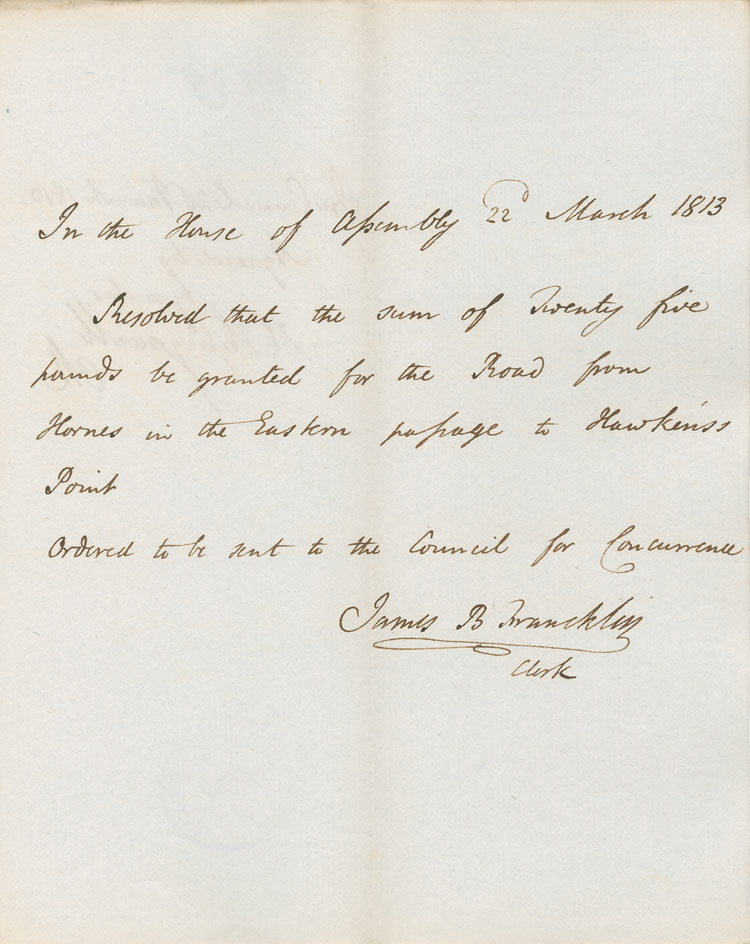 In the House of Assembly 22d March 1813
Resolved that the sum of Twenty five
pounds be granted for the Road from
Hornes in the Eastern passage to Hawkin's
Point
Ordered to be sent to the Council for Concurrence
James B Francklin
Clerk